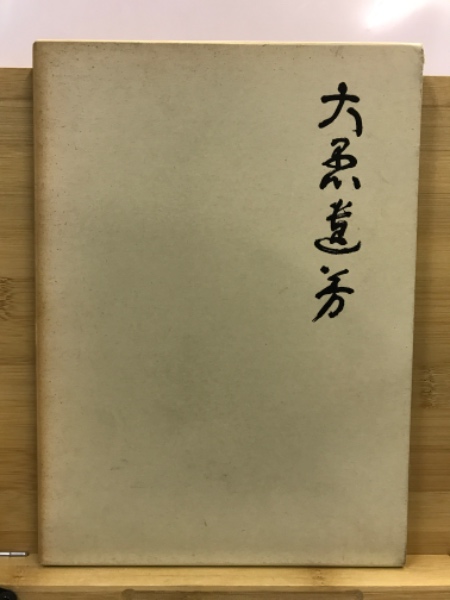 大愚遺芳